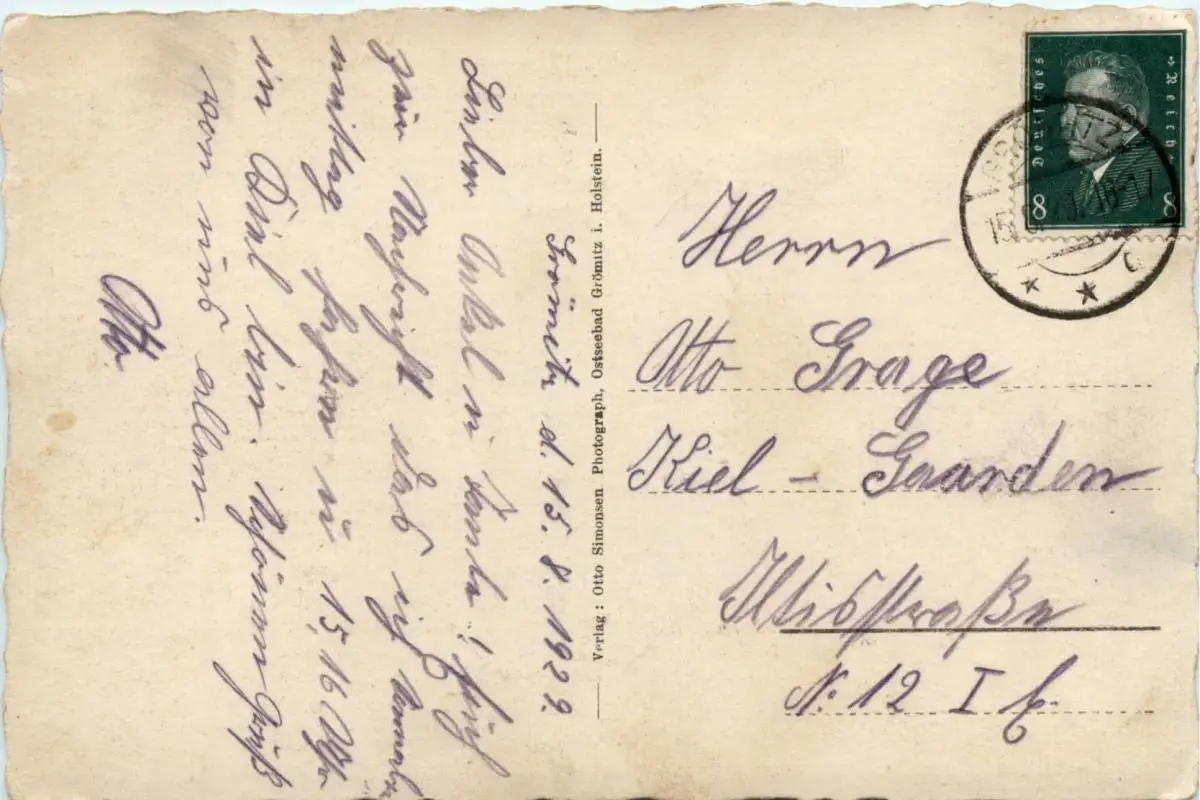 Grömitz d. 15. 8. 1929.
Lieber Onkel u Tante!
zur Nachricht das ich
mittag fahre u. 15,16 Uhr
in Kiel bin. Schönen Gruß
von uns allen.
Otto.
Verlag: Otto Simonsen Photograph, Ostseebad Grömitz i. Holstein.
Deutsches Reich
8 8
GRÖMITZ
Herrn
Otto Grage
Kiel - Gaarden
Iltisstraße
Nr. 12 I